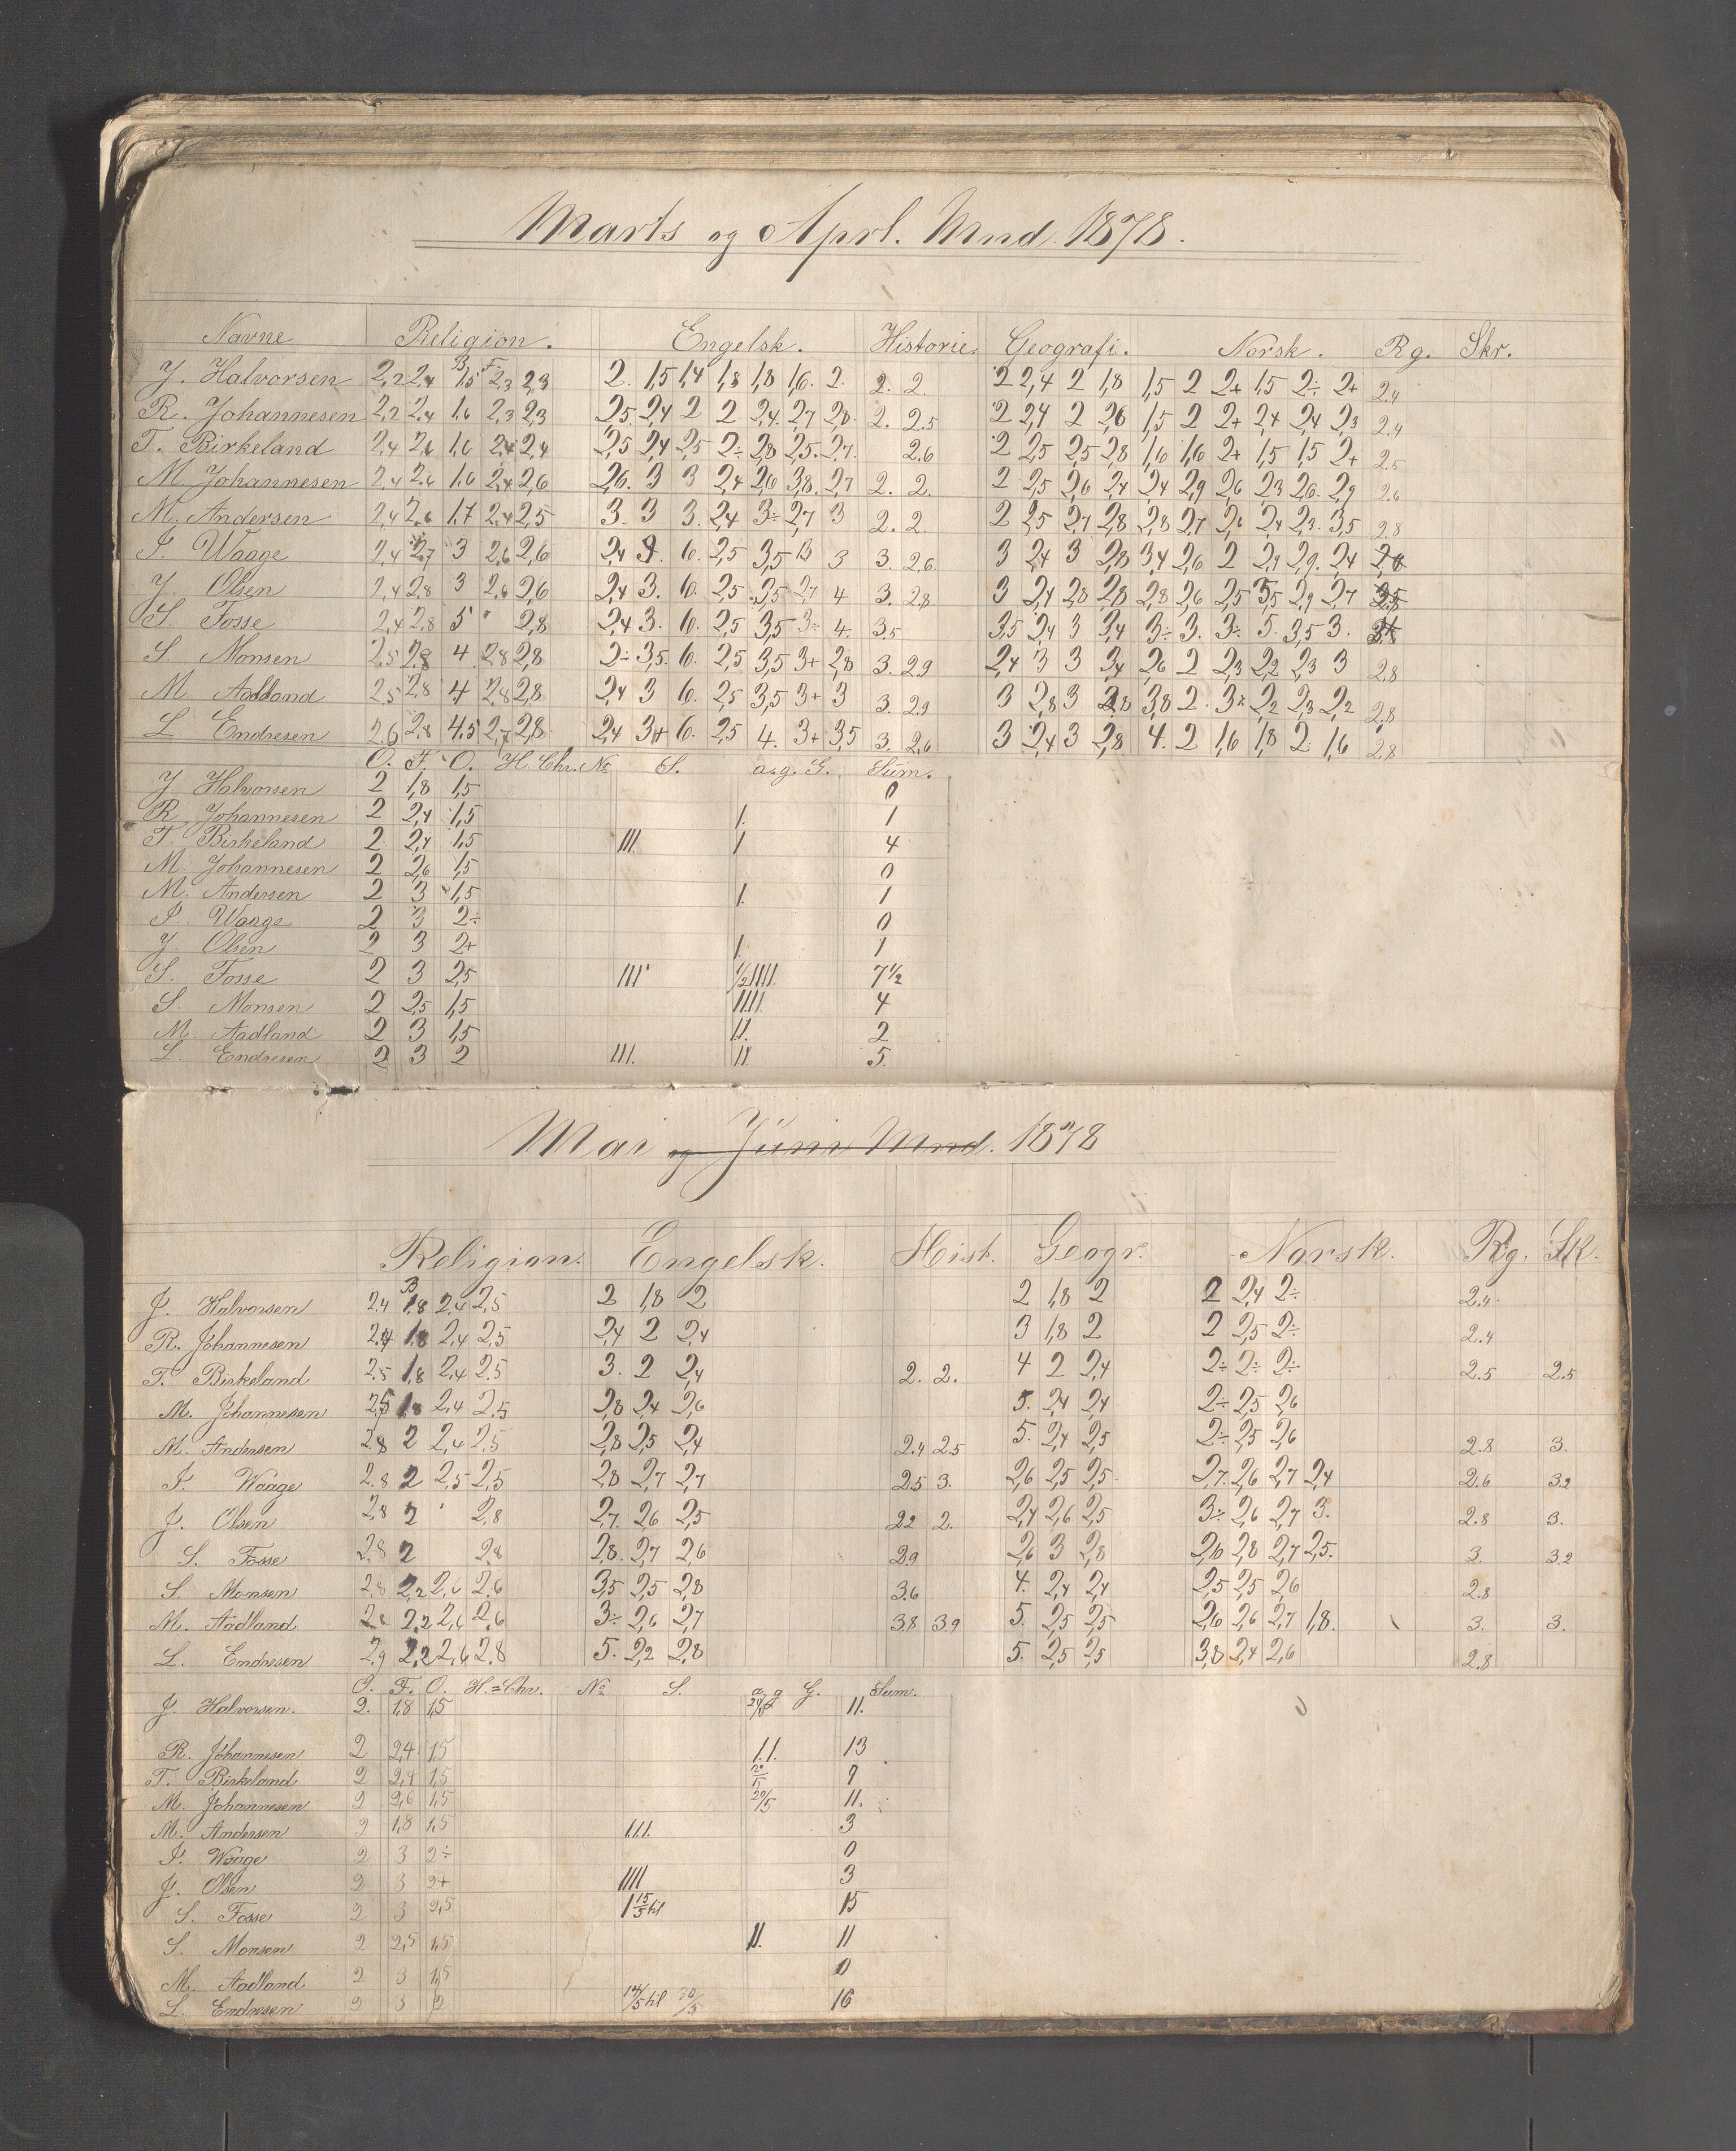 Marts og Aprl. Mnd. 1878.
Navne Religion. Engelsk. Historie. Geografi. Norsk. Rg. Skr.
B. F.
J. Halvorsen 2,2 2,4 1,5 2,3 2,3 2. 1,5 1,4 1,8 1,8 1,6. 2. 2. 2. 2 2,4 2 1,8 1,5 2 2+ 1,5 2÷ 2+ 2.4
R. Johannesen 2,2 2,4 1,6 2,3 2,3 2,5. 2,4 2 2 2,4. 2,7 2,8. 2. 2.5 2 2,4 2 2,6 1,5 2 2+ 2,4 2,4 2,3 2.4
T. Birkeland 2,4 2,6 1,6 2,4 2,4 2,5 2,4 2,5 2÷ 2,8 2,5. 2,7. 2.6 2 2,5 2,5 2,8 1,6 1,6 2+ 1,5 1,5 2+ 2.5
M. Johannesen 2,4 2,6 1,6 2,4 2,6 2,6. 3 3 2,4 2,6 3,8. 2,7 2. 2. 2 2,5 2,6 2,4 2,4 2,9 2,6 2,3 2,6. 2,9 2.6
M. Andersen 2,4 2,6 1,7 2,4 2,5 3. 3 3. 2,4 3÷ 2,7 3 2. 2. 2 2,5 2,7 2,8 2,8 2,7 2,6 2,4 2,3. 3,5 2.8
I. Waage 2,4 2,7 3 2,6 2,6 2,4 6. 2,5 3,5 3 3. 2.6. 3 2,4 3 2,8 3,4 2,6 2 2,9 2,9. 2,4
J. Olsen 2,4 2,8 3 2,6 2,6 2,4 3. 6. 2,5 3,5 2,7 4 3. 2.8. 3 2,4 2,8 2,8 2,8 2,6 2,5 3,5 2,9 2,7
S. Fosse 2,4 2,8 5 " 2,8 2,4 3. 6. 2,5 3,5 3÷ 4. 3.5 3,5 2,4 3 3,4 3÷ 3. 3÷ 5. 3,5 3.
S. Monsen 2,5 2,8 4 2,8 2,8 2÷ 3,5. 6. 2,5 3,5 3+ 2,8 3. 2.9 2,4 3 3 3,4 2,6 2 2,3 2,2 2,3 3 2.8
M. Aadland 2,5 2,8 4 2,8 2,8 2,4 3 6. 2,5 3,5 3+ 3 3. 2.9 3 2,8 3 2,8 3,8 2. 3÷ 2,2 2,3 2,2 2.8
L. Endresen 2,6 2,8 4.5 2,7 2,8. 2,4 3+ 6. 2,5 4. 3+ 3,5 3. 2.6 3 2,4 3 2,8 4. 2 1,6 1,8 2 1,6 2.8
O. F. O. H. Chr. No S. a. g. G. Sum.
J. Halvorsen 2 1,8 1,5 0
R. Johannesen 2 2,4 1,5 1. 1
T. Birkeland 2 2,4 1,5 III. 1 4
M. Johannesen 2 2,6 1,5 0
M. Andersen 2 3 1,5 1. 1
I. Waage 2 3 2÷ 0
J. Olsen 2 3 2+ 1. 1
S. Fosse 2 3 2,5 III 1/2 IIII. 7 1/2
S. Monsen 2 2,5 1,5 IIII. 4
M. Aadland 2 3 1,5 II. 2
L. Endresen 2 3 2 III. II. 5.
Mai og Juni Mnd. 1878
Religion. Engelsk. Hist. Geogr. Norsk. Rg. Sk.
B
J. Halvorsen 2,4 1,8 2,4 2,5 2 1,8 2 2 1,8 2 2 2,4 2÷ 2.4.
R. Johannesen 2,4 1,8 2,4 2,5 2,4 2 2,4 3 1,8 2 2 2,5 2÷ 2.4
T. Birkeland 2,5 1,8 2,4 2,5 3. 2 2,4 2. 2. 4 2 2,4 2÷ 2÷ 2÷ 2.5 2.5
M. Johannesen 2,5 1,8 2,4 2,5 2,8 2,4 2,6 5. 2,4 2,4 2÷ 2,5 2,6
M. Andersen 2,8 2 2,4 2,5 2,8 2,5 2,4 2.4 2.5 5. 2,4 2,5 2÷ 2,5 2,6 2.8 3.
I. Waage 2,8 2 2,5 2,5 2,8 2,7 2,7 2.5 3. 2,6 2,5 2,5. 2,7. 2,6 2,7 2,4 2.6 3.2
J. Olsen 2,8 2 ' 2,8 2,7. 2,6 2,5 2.2 2. 2,4 2,6 2,5 3÷ 2,6 2,7 3. 2.8 3.
S. Fosse 2,8 2 2,8 2,8. 2,7 2,6 2.9 2,6 3 2,8 2,6 2,8 2,7 2,5. 3. 3.2
S. Monsen 2,8 2,2 2,6 2,6 3,5 2,5 2,8 3.6 4. 2,4 2,4 2,5 2,5 2,6 2.8
M. Aadland 2,8 2,2 2,6 2,6 3÷ 2,6 2,7 3.8 3.9 5. 2,5 2,5 2,6 2,6 2,7 1,8. 3. 3.
L. Endresen 2,9 2,2 2,6 2,8 5. 2,2 2,8 5. 2,5 2,5 3,8 2,4 2,6 2.8
O. F. O. H.=Chr. No S. a. g G. Sum.
J. Halvorsen. 2. 1,8 1,5 11.
R. Johannesen 2 2,4 1,5 1.1. 13
T. Birkeland 2 2,4 1,5 9
M. Johannesen 2 2,6 1,5 20/5 11.
M. Andersen 2 1,8 1,5 III. 3
I. Waage 2 3 2÷ 0
J. Olsen 2 3 2+ IIII 3
S. Fosse 2 3 2,5 1 15/5 til 15
S. Monsen 2 2,5 1,5 11. 11
M. Aadland 2 3 1,5 0
L. Endresen 2 3 2 14/5 til 30/5 16